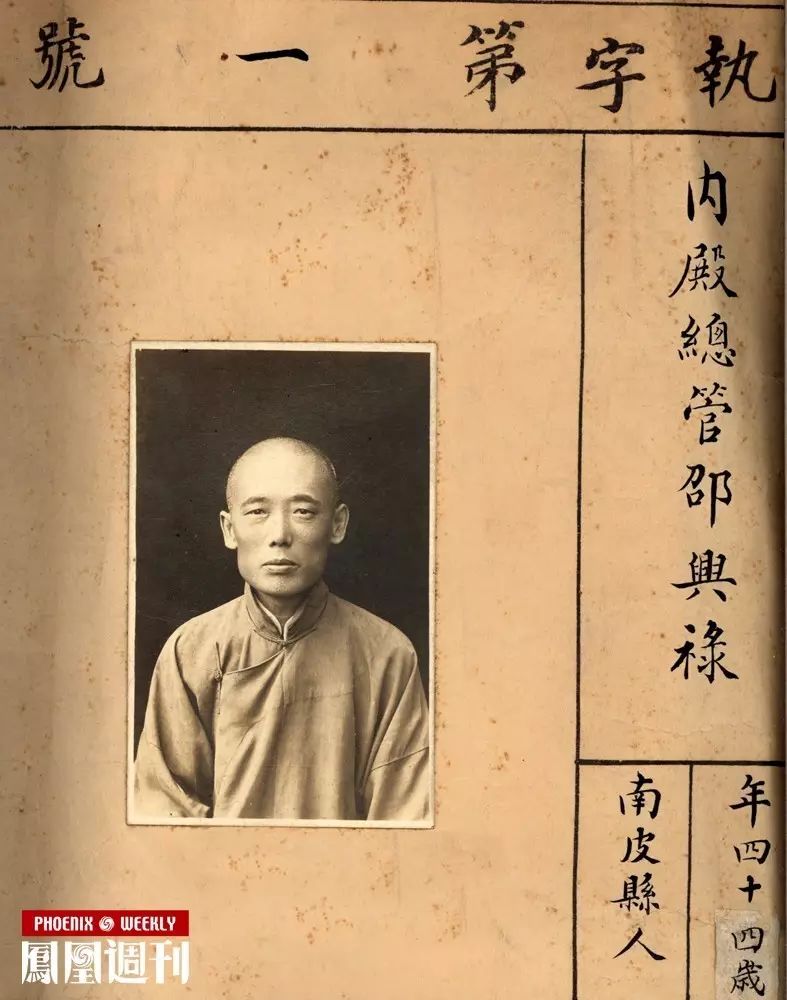 執字第一號
内殿總管邵興祿
年四十四歲
南皮縣人
PHOENIX WEEKLY
鳳凰週刊